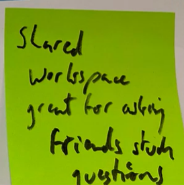 Shared
workspace
great for asking
friends stuch
questions